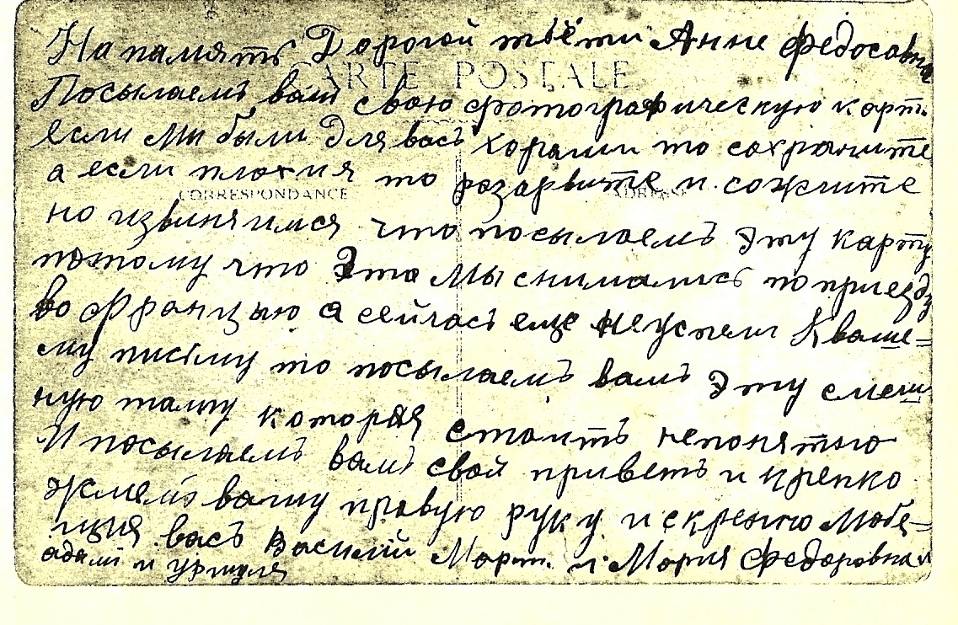 На память Дорогой тьёти Анне Федосовне
CARTE POSTALE
Посылаемъ вам свою фотографическую карт.
если мы были для васъ хорашии то сохраните
а если плохия то розарвите и сожгите
CORRESPONDANCE ADRESSE
но извиняимся что посылаемъ эту карту
потому что Это мы снимались по приезду
во Францыю а сейчасъ еще не успели к ваше=
му письму то посылаемъ вамъ эту смеш
ную которая стоитъ непонятою
И посылаемъ вамъ свой приветъ и крепко
жмемъ вашу правую руку искренно любе=
щия васъ Василий Март. и Мария Федоровна и
адам и уршуля